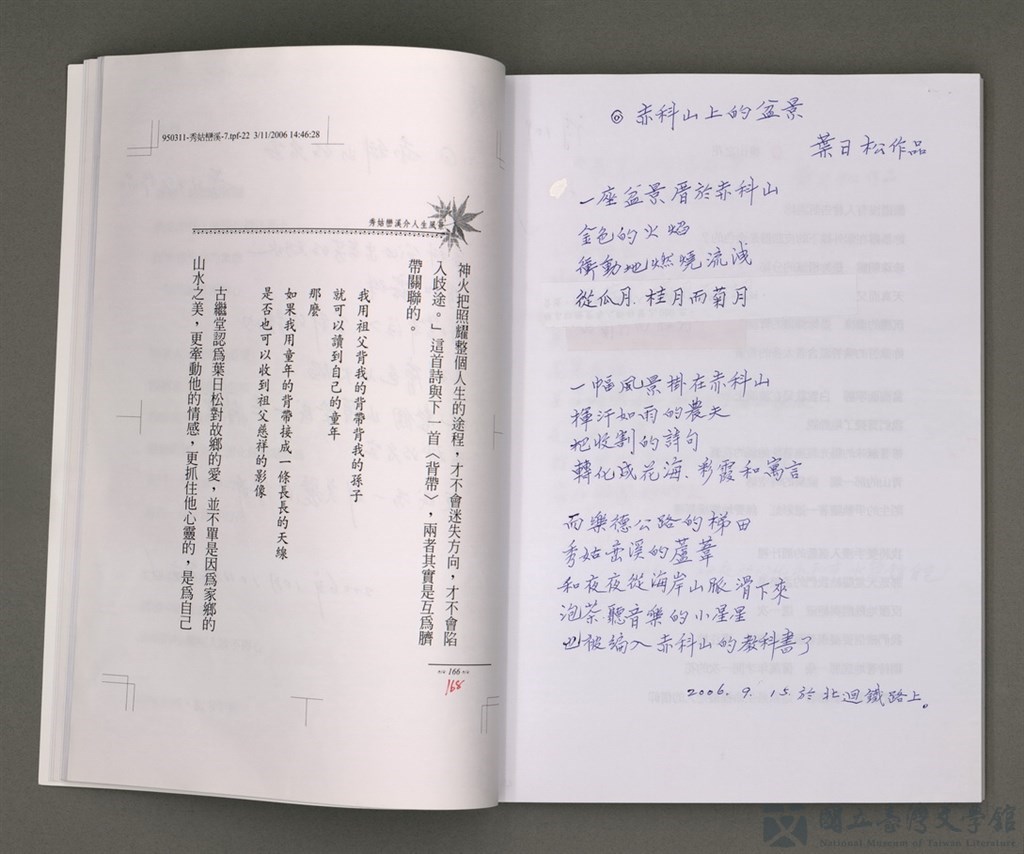 950311-秀姑巒溪-7.tpf-22 3/11/2006 14:46:28
秀姑巒溪介人生風景
神火把照耀整個人生的途程，才不會迷失方向，才不會陷
入歧途。」這首詩與下一首〈背帶〉，兩者其實是互為臍
帶關聯的。
我用祖父背我的背帶背我的孫子
就可以讀到自己的童年
那麼
如果我用童年的背帶接成一條長長的天線
是否也可以收到祖父慈祥的影像
古繼堂認為葉日松對故鄉的愛，並不單是因為家鄉的
山水之美，更牽動他的情感，更抓住他心靈的，是為自己
166
168
◎ 赤科山上的盆景
葉日松作品
一座盆景厝於赤科山
金色的火焰
衝動地燃燒流洩
從瓜月、桂月而菊月
一幅風景掛在赤科山
揮汗如雨的農夫
把收割的詩句
轉化成花海、彩霞和寓言
而樂德公路的梯田
秀姑巒溪的蘆葦
和夜夜從海岸山脈滑下來
泡茶聽音樂的小星星
也被編入赤科山的教科書了
2006. 9. 15. 於北迴鐵路上。
國立臺灣文學館
National Museum of Taiwan Literature